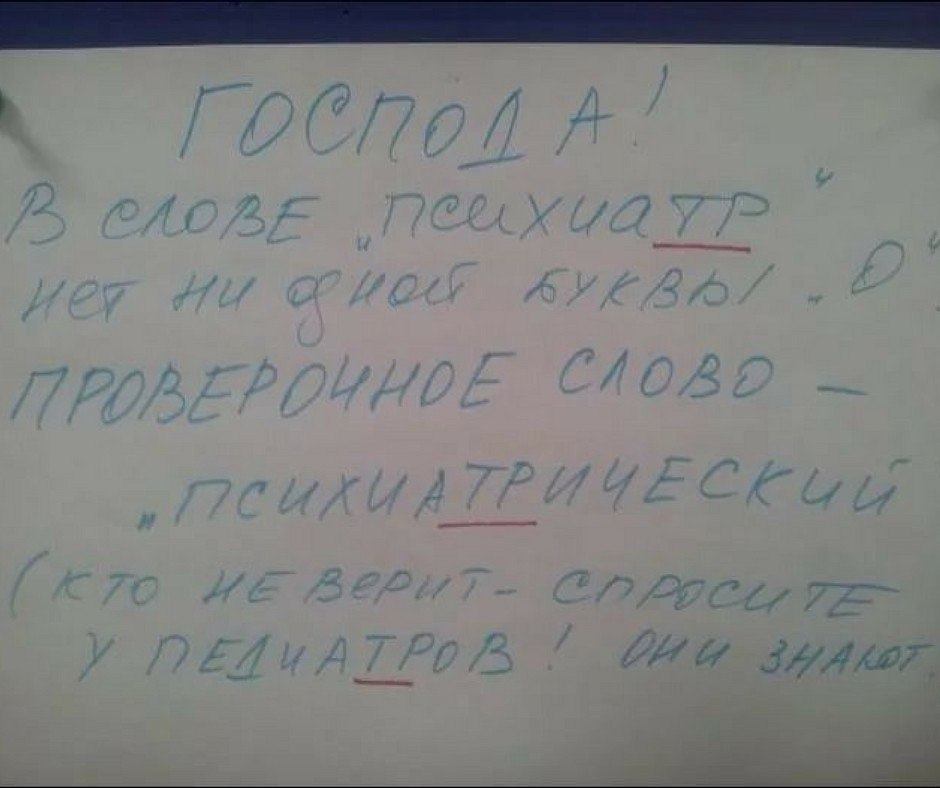 ГОСПОДА!
В СЛОВЕ „ПСИХИАТР“
НЕТ НИ ОДНОЙ БУКВЫ „О“.
ПРОВЕРОЧНОЕ СЛОВО –
„ПСИХИАТРИЧЕСКИЙ
(КТО НЕ ВЕРИТ – СПРОСИТЕ
У ПЕДИАТРОВ! ОНИ ЗНАЮТ.